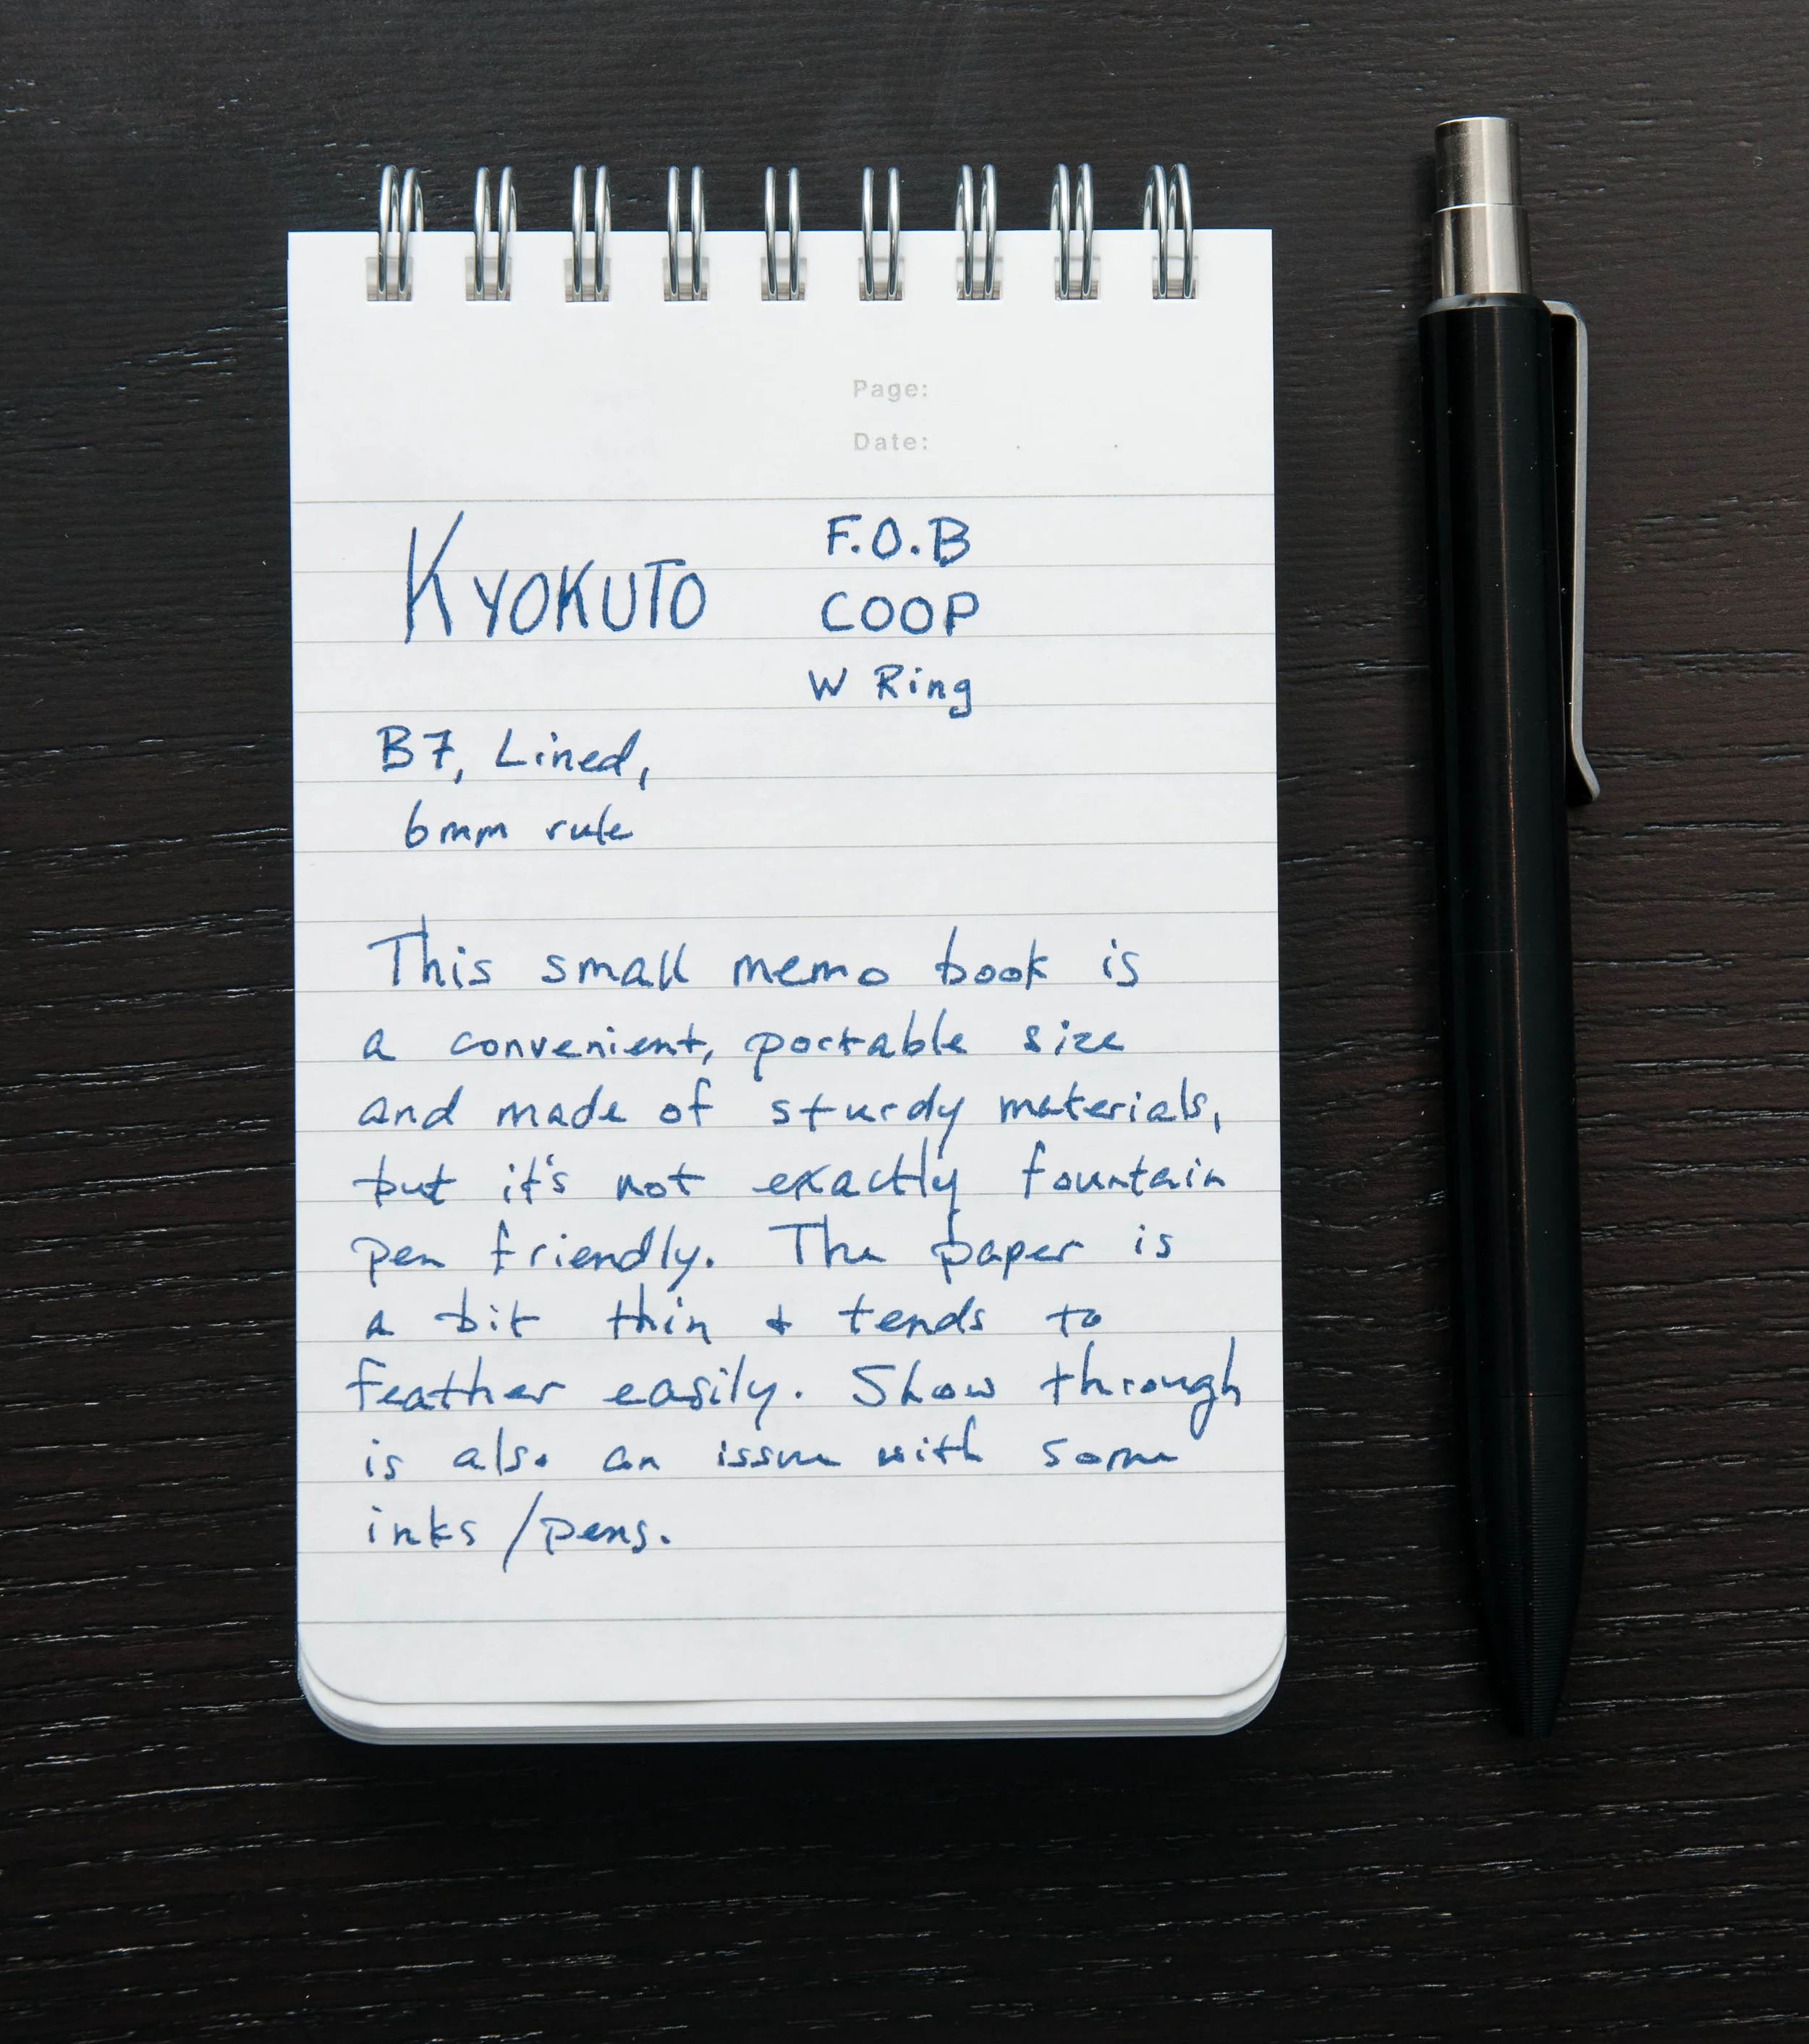 Page:
Date: . .
KYOKUTO
F.O.B
COOP
W Ring
B7, Lined,
6mm rule
This small memo book is
a convenient, portable size
and made of sturdy materials,
but it's not exactly fountain
pen friendly. The paper is
a bit thin & tends to
feather easily. Show through
is also an issue with some
inks/pens.